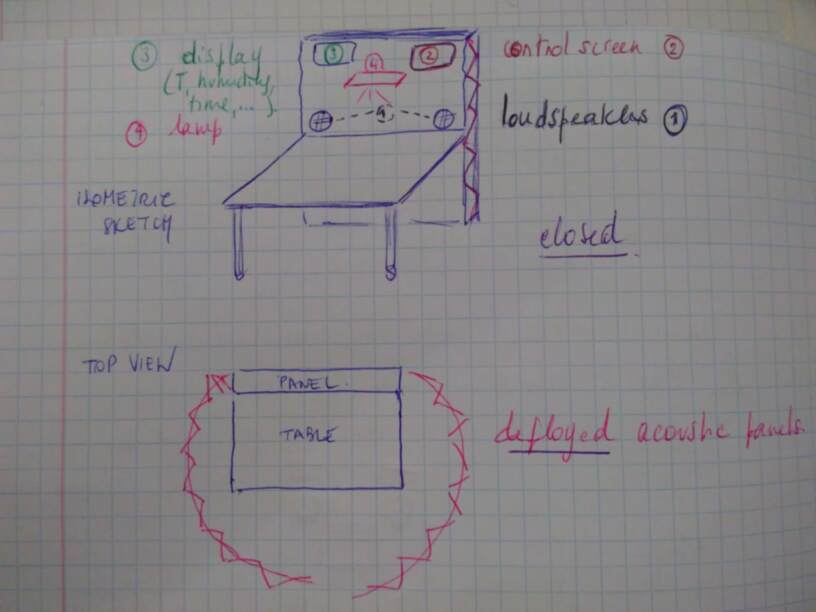 ③ display
(T, humidity,
time, ...)
④ lamp
③
④
②
control screen ②
loudspeakers ①
ISOMETRIC
SKETCH
closed
TOP VIEW
PANEL
TABLE
deployed acoustic panels